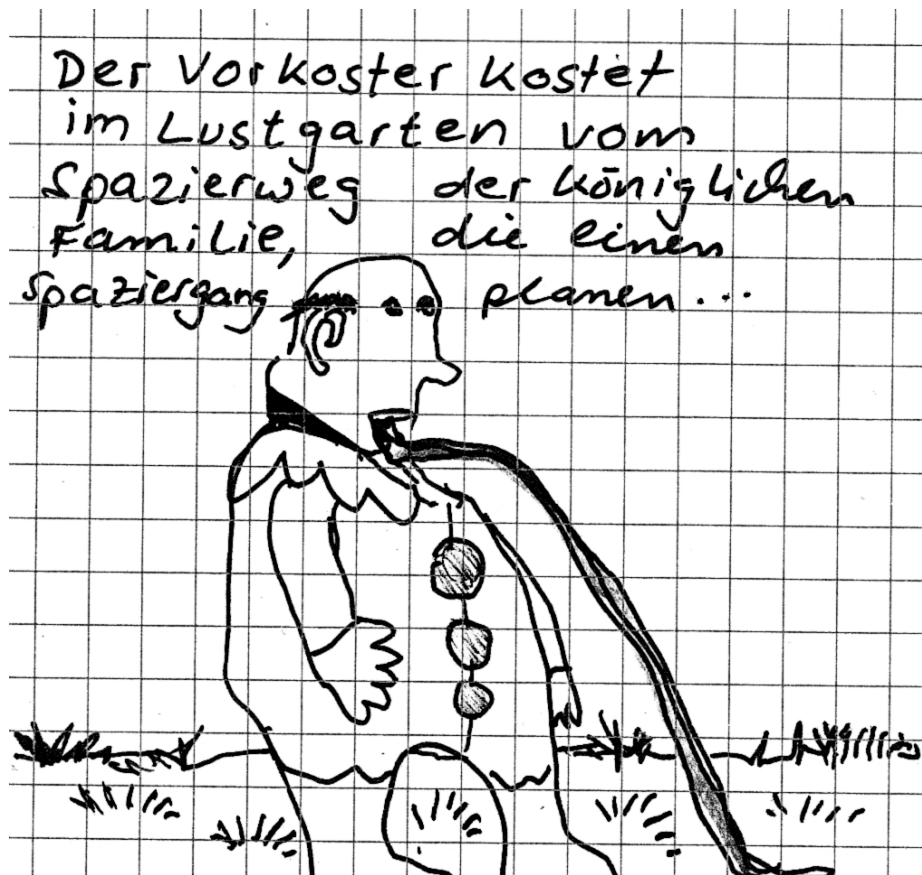 Der Vorkoster kostet
im Lustgarten vom
Spazierweg der königlichen
Familie, die einen
Spaziergang planen...